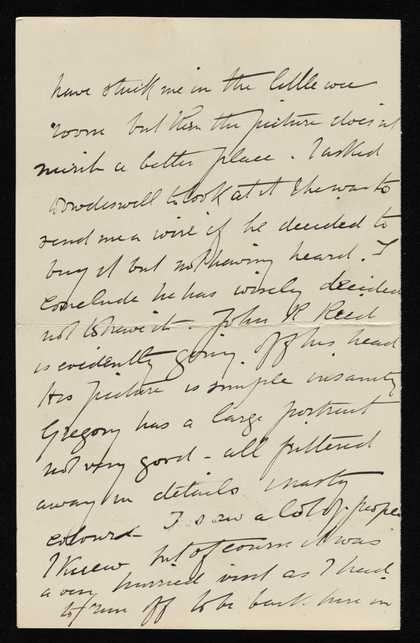 have stuck me in the little wee
room but then the picture does n't
merit a better place. I asked
Dowdeswell to look at it & he was to
send me a wire if he decided to
buy it but not having heard. I
conclude he has wisely decided
not to have it. John R Reed
is evidently going off his head
His picture is simple insanity
Gregory has a large portrait
not very good - all frittered
away in details & nasty
colour. I saw a lot of people
I knew but of course it was
a very hurried visit as I had
to run off to be back here in